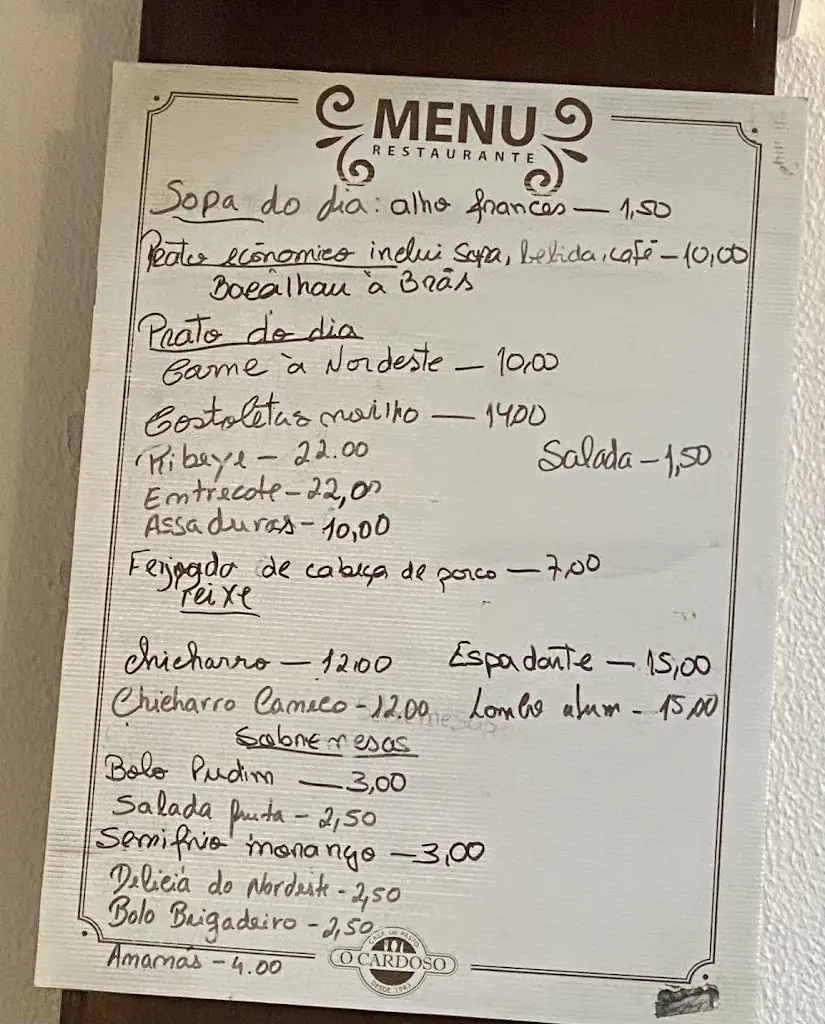 MENU
RESTAURANTE
Sopa do dia: alho frances — 1,50
Prato económico inclui sopa, bebida, café — 10,00
Bacalhau à Brás
Prato do dia
Carne à Nordeste — 10,00
Costoletas novilho — 14,00
Ribeye — 22.00
Salada — 1,50
Entrecote — 22,00
Assaduras — 10,00
Feijoada de cabeça de porco — 7,00
Peixe
Chicharro — 12,00 Espadarte — 15,00
Chicharro — 12.00 Lombo atum — 15,00
Sobremesas
Bolo Pudim — 3,00
Salada fruta — 2,50
Semifrio morango — 3,00
Delicia do Nordeste - 2,50
Bolo Brigadeiro - 2,50
Ananás - 4.00
CASA DE PASTO
O CARDOSO
DESDE 1943